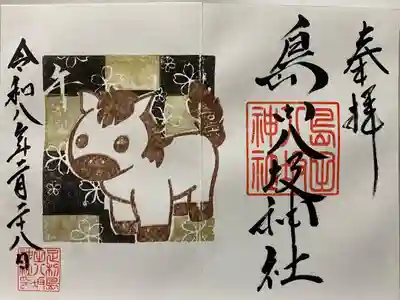 奉拝
島田八坂神社
島田八坂神社
午
令和八年二月二十八日